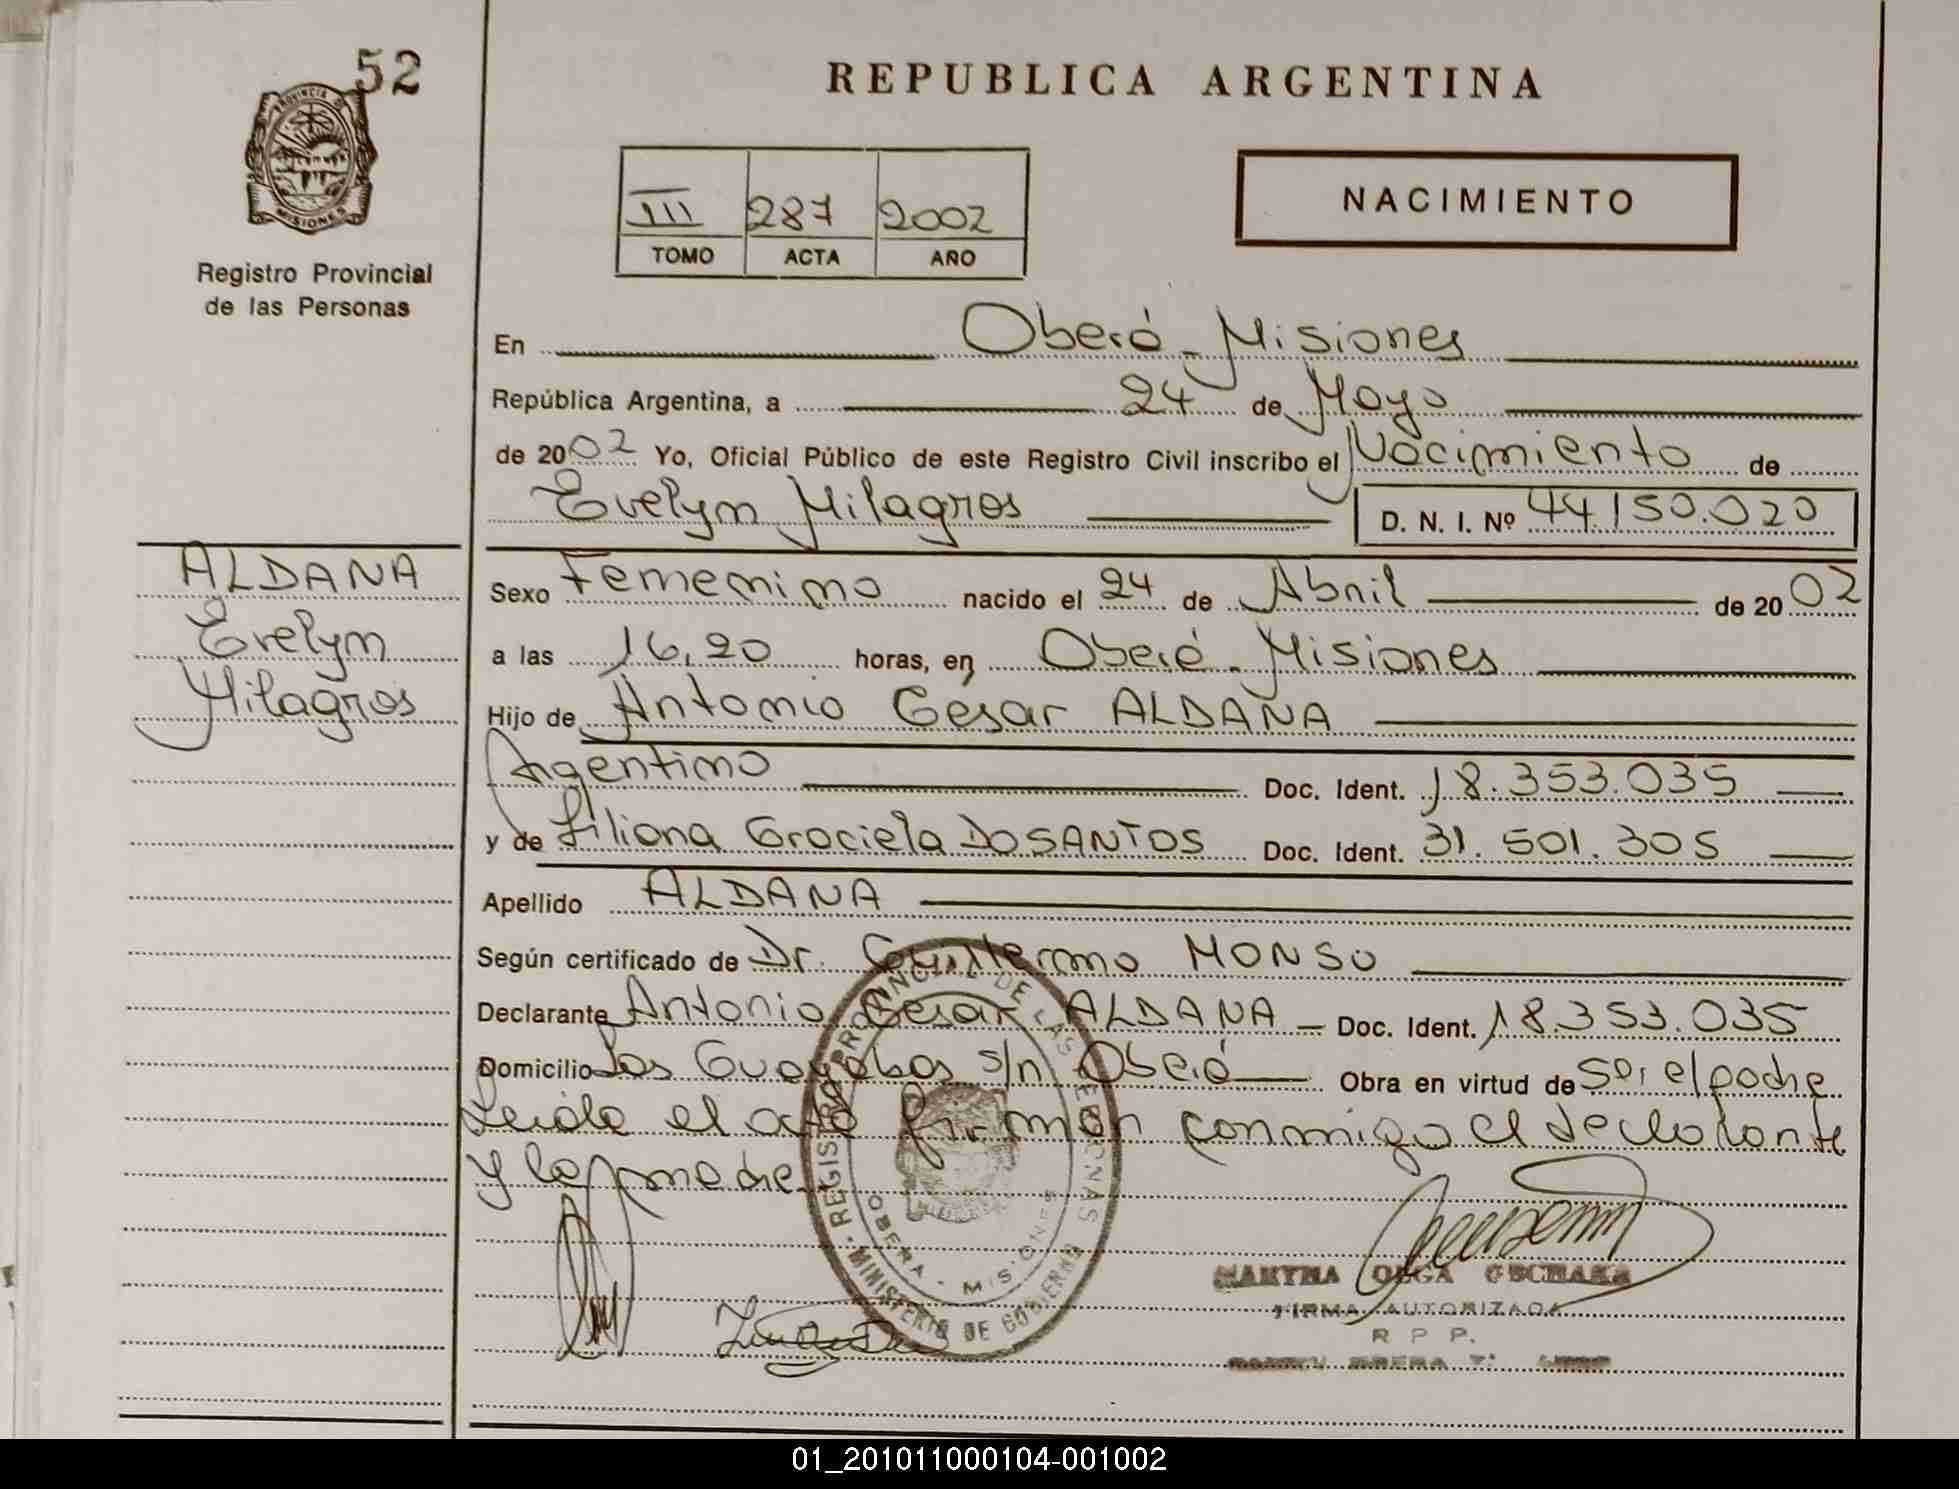 52
PROVINCIA DE
MISIONES
Registro Provincial
de las Personas
REPUBLICA ARGENTINA
III 287 2002
TOMO ACTA AÑO
NACIMIENTO
En Oberá - Misiones
República Argentina, a 24 de Mayo
de 2002 Yo, Oficial Público de este Registro Civil inscribo el Nacimiento de
Evelyn Milagros D. N. I. Nº 44.150.020
ALDANA
Evelyn
Milagros
Sexo Femenino nacido el 24 de Abril de 2002
a las 16,20 horas, en Oberá - Misiones
Hijo de Antonio Cesar ALDANA
Argentino Doc. Ident. 18.353.035
y de Liliana Graciela DOSANTOS Doc. Ident. 31.501.305
Apellido ALDANA
Según certificado de Dr. Guillermo MONSU
Declarante Antonio Cesar ALDANA - Doc. Ident. 18.353.035
Domicilio Los Guayabos s/n Oberá Obra en virtud de ser el padre
Leida el acta firman conmigo el declarante
y la madre
REGISTRO PROVINCIAL DE LAS PERSONAS
OBERA - MISIONES
MINISTERIO DE GOBIERNO
MARTHA OLGA
FIRMA AUTORIZADA
R P P.
01_201011000104-001002